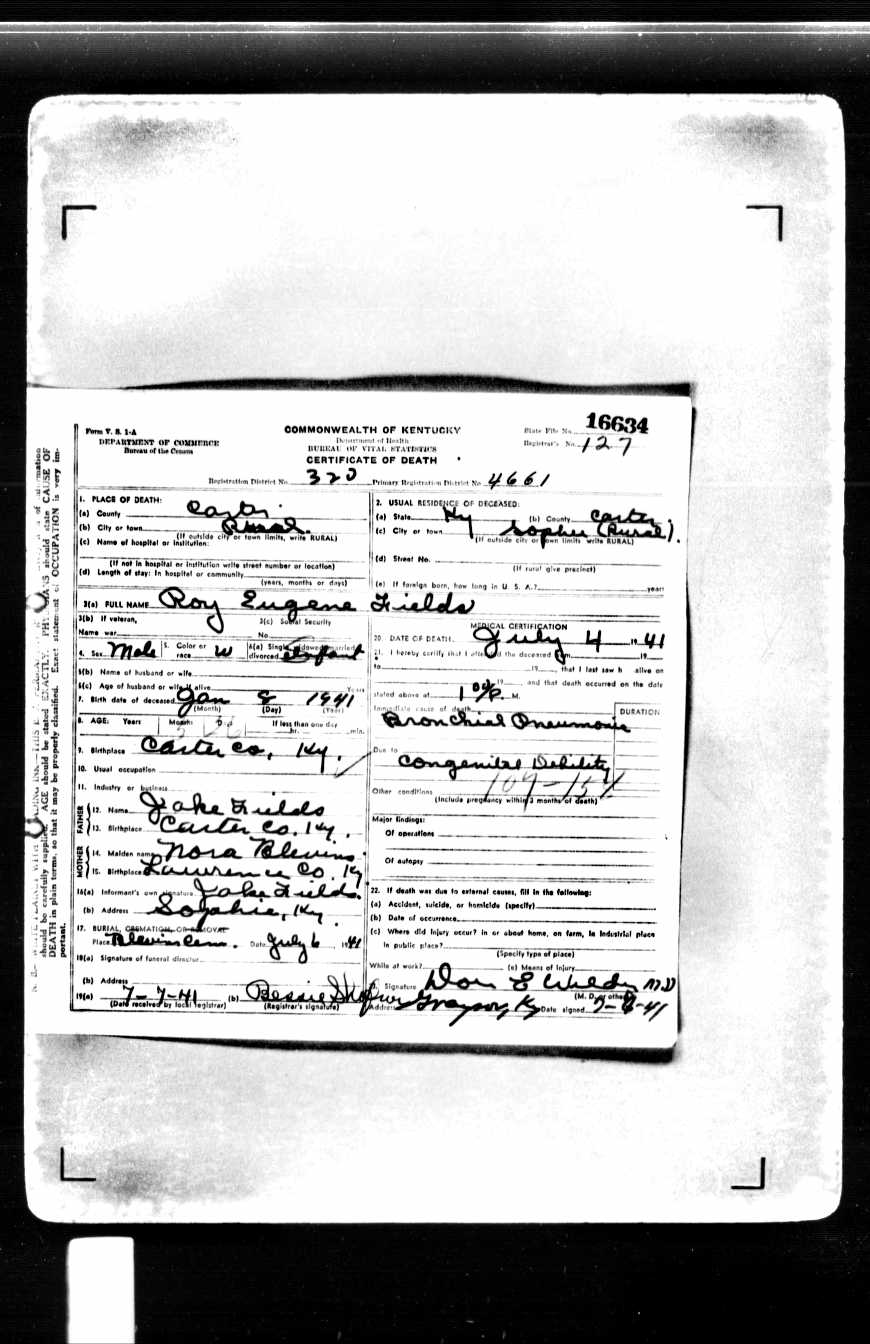 Form V. S. 1-A
DEPARTMENT OF COMMERCE
Bureau of the Census
COMMONWEALTH OF KENTUCKY
Department of Health
BUREAU OF VITAL STATISTICS
CERTIFICATE OF DEATH
State File No. 16634
Registrar's No. 127
Registration District No. 320 Primary Registration District No. 4661
1. PLACE OF DEATH:
(a) County Carter
(b) City or town Rural.
(If outside city or town limits, write RURAL)
(c) Name of hospital or institution:
(If not in hospital or institution write street number or location)
(d) Length of stay: In hospital or community
(years, months or days)
2. USUAL RESIDENCE OF DECEASED:
(a) State Ky (b) County Carter
(c) City or town (Rural).
(If outside city or town limits write RURAL)
(d) Street No.
(If rural give precinct)
(e) If foreign born, how long in U. S. A.? years
3(a) FULL NAME Roy Eugene Fields
3(b) If veteran, 3(c) Social Security
Name war No.
4. Sex Male 5. Color or race W 6(a) Single, widowed, married, divorced Infant
6(b) Name of husband or wife
6(c) Age of husband or wife if alive Years
7. Birth date of deceased Jan 8 1941
(Month) (Day) (Year)
8. AGE: Years Months Days If less than one day
hr. min.
9. Birthplace Carter Co, Ky.
10. Usual occupation
11. Industry or business
FATHER
12. Name Jake Fields
13. Birthplace Carter Co. Ky.
MOTHER
14. Maiden name Nora Blevins
15. Birthplace Lawrence Co. Ky
16(a) Informant's own signature Jake Fields.
(b) Address Ky
17. BURIAL, CREMATION, OR REMOVAL
Place Blevins Cem. Date July 6, 1941
18(a) Signature of funeral director
(b) Address
19(a) 7-7-41 (b) Bessie
(Date received by local registrar) (Registrar's signature)
MEDICAL CERTIFICATION
20. DATE OF DEATH: July 4 1941
21. I hereby certify that I attended the deceased from 19
to 19 , that I last saw h alive on
19 , and that death occurred on the date
stated above at 1 P. M.
Immediate cause of death
DURATION
Bronchial Pneumonia
Due to
Congenital Debility
Other conditions
(Include pregnancy within 3 months of death)
Major findings:
Of operations
Of autopsy
22. If death was due to external causes, fill in the following:
(a) Accident, suicide, or homicide (specify)
(b) Date of occurrence
(c) Where did injury occur? in or about home, on farm, in industrial place
in public place?
(Specify type of place)
While at work? (e) Means of Injury
Signature Don E M D
(M. D. or other)
Address Grayson, Ky Date signed
should be carefully supplied. AGE should be stated EXACTLY. PHYSICIANS should state CAUSE OF
DEATH in plain terms, so that it may be properly classified. Exact statement of OCCUPATION is very im-
portant.